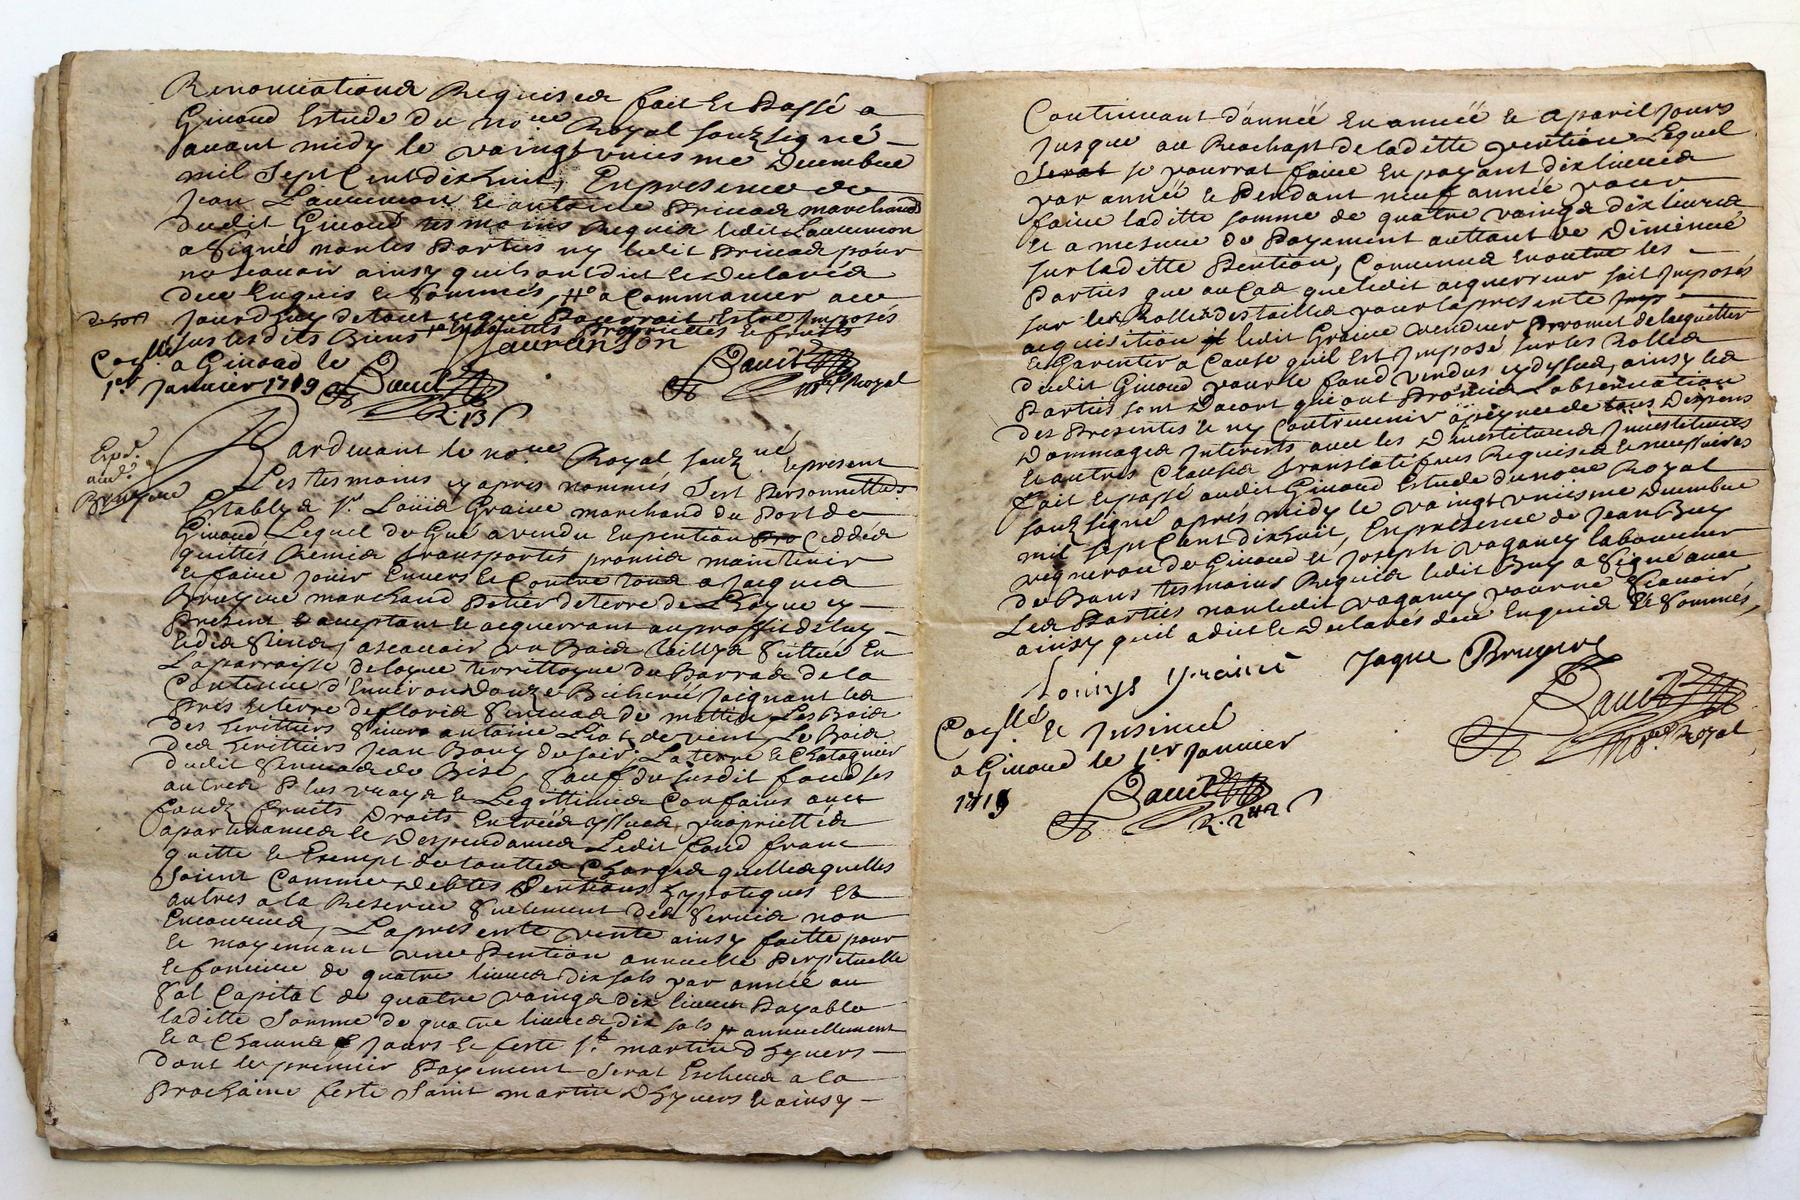 Renonciations Requises fait et Passé a
Givord Estude du no.re Royal souzsigné
avant midy le vaingt vniesme Decembre
mil sept Cent dix huit, En presence de
Jean Laurenson et antoine Privas marchands
dudit Givord tesmoins Requis ledit Laurenson
a signé non les Parties ny ledit Privas pour
ne scavoir ainsy quils ont dit et declarés
deue Enquis et sommés, a Commancer
Jourdhuy de tout ce qui Pourrait Estre Imposés
sur lesdits Biens
Laurenson
a Givord le
1.er Janvier 1719
R. 13 s
no.re Royal
Exp.é
aud.
Bruyere
Pardevant le no.re Royal souz.né
Les tesmoins cy apres nommés
Estably s.r Louis Graive marchand du Port de
Givord Lequel de Gré a vendu En pention Ceddés
quittés Remis transportés promis maintenir
et faire Jouir Envers et Contre tous a Jacques
Bruyere marchand Potier de terre de cy
Present acceptant et acquerrant au proffit de luy
et des siens, ascavoir un Bois taillys situé En
La parroisse de territoyre du Barra de la
Contenue d'Environ Bicherée Joignant les
Prés et terre de de matin, Les Bois
des herittiers antoine de vent, Le Bois
des herittiers Jean Bony du soir, La terre et Chatagnier
dudit de Bise, sauf du susdit fond ses
autres Plus vrays et Legittimes Confains avec
fondz fruits Droits Entrées yssues proprietés
apartenances et Despendances Ledit fond franc
quitte et Exempt de touttes Charges quelles quelles
soient Comme debtes Pentions hypoteques et
autres a la Reserve seulement des servis non
Encourrus, La presente vente ainsy faitte pour
et moyennant une Pention annuelle Perpetuelle
et fonciere de quatre livres dix sols par année au
sol Capital de quatre vaingt dix livres Payable
laditte somme de quatre livres dix sols annuellement
et a Chacuns Jours et feste s.t martin d'hyvers
dont le premier Payement serat Escheus a la
Prochaine feste saint martin Dhyvers et ainsy
Continuant d'année En année et a Pareil Jours
Jusque au Reachapt de laditte pention Lequel
se pourrat faire En payant dix livres
par année et Pendant neuf année pour
faire laditte somme de quatre vaingt dix livres
et a mesure du Payement auttant de Diminué
sur laditte Pention, Convenus En outre les
Parties que au Cas que ledit acquerreur soit Imposés
sur les Rolles des tailles pour la presente
acquisition ledit Graive vendeur Promet de lacquitter
et Garentir a Cause quil Est Imposé sur les Rolles
dudit Givord pour le fond vendus cy dessus, ainsy les
Parties sont Dacort qui ont Promis Lobservation
des Presentes et ny Contrevenir a peyne de tous Despens
Dommages Interests avec les Devestitures Investitures
et autres Clauses translatives Requises et necessaires
fait et passé audit Givord Estude du no.re Royal
souzsigné aprés midy le vaingt vniesme Decembre
mil sept Cent dix huit, En presence de Jean Buy
vigneron de Givord et Joseph vaganey laboureur
de Bans tesmoins Requis ledit Buy a signé avec
Les Parties non ledit vaganey pour ne scavoir
ainsy quil a dit et Declarés deue Enquis et sommés,
Louys graive Jaque Bruyere
no.re Royal
et Insinué
a Givord le 1.er Janvier
1719